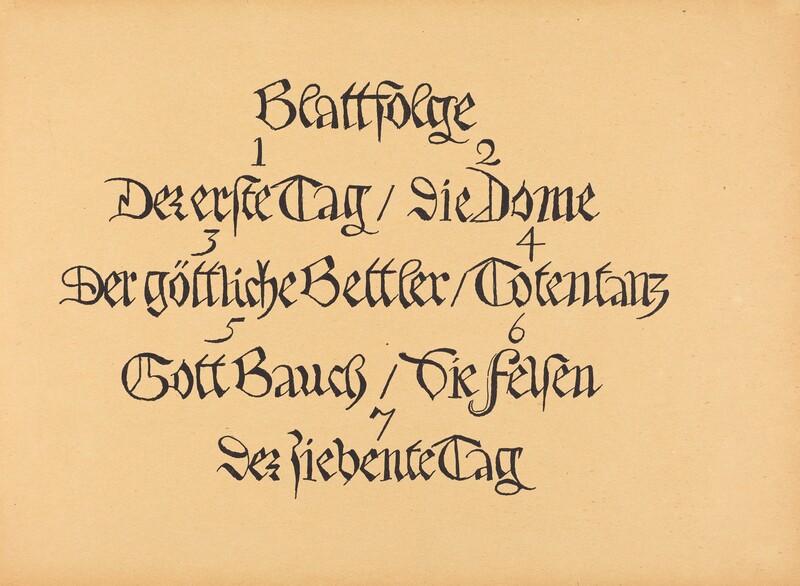 Blattfolge
1 2
Der erste Tag / die Dome
3 4
Der göttliche Bettler / Totentanz
5 6
Gott Bauch / Die Felsen
7
Der siebente Tag